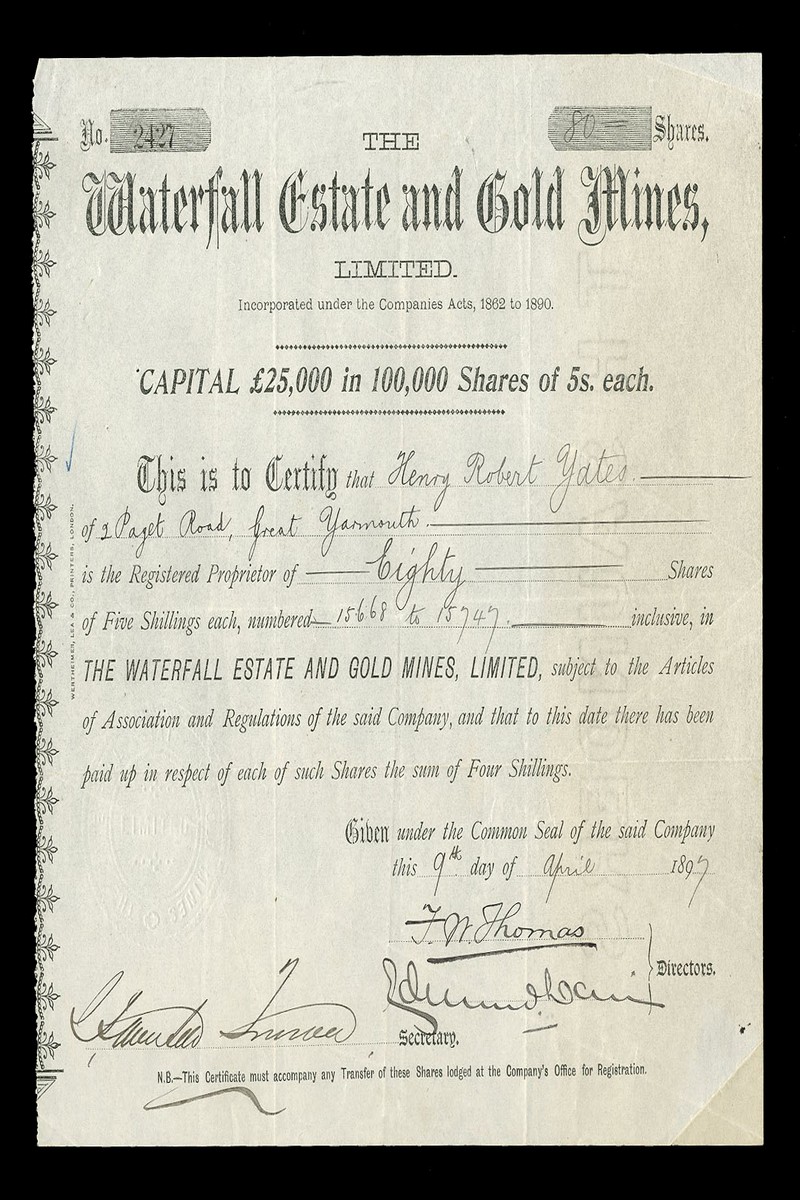 No. 2427
80 = Shares.
THE
Waterfall Estate and Gold Mines,
LIMITED.
Incorporated under the Companies Acts, 1862 to 1890.
CAPITAL £25,000 in 100,000 Shares of 5s. each.
This is to Certify that Henry Robert Yates.
of 2 Paget Road, Great Yarmouth.
is the Registered Proprietor of Eighty Shares
of Five Shillings each, numbered 15668 to 15747. inclusive, in
THE WATERFALL ESTATE AND GOLD MINES, LIMITED, subject to the Articles
of Association and Regulations of the said Company, and that to this date there has been
paid up in respect of each of such Shares the sum of Four Shillings.
Given under the Common Seal of the said Company
this 9th day of April 1897
F. W. Thomas
Directors.
Secretary.
N.B.—This Certificate must accompany any Transfer of these Shares lodged at the Company's Office for Registration.
WERTHEIMER, LEA & CO., PRINTERS, LONDON.